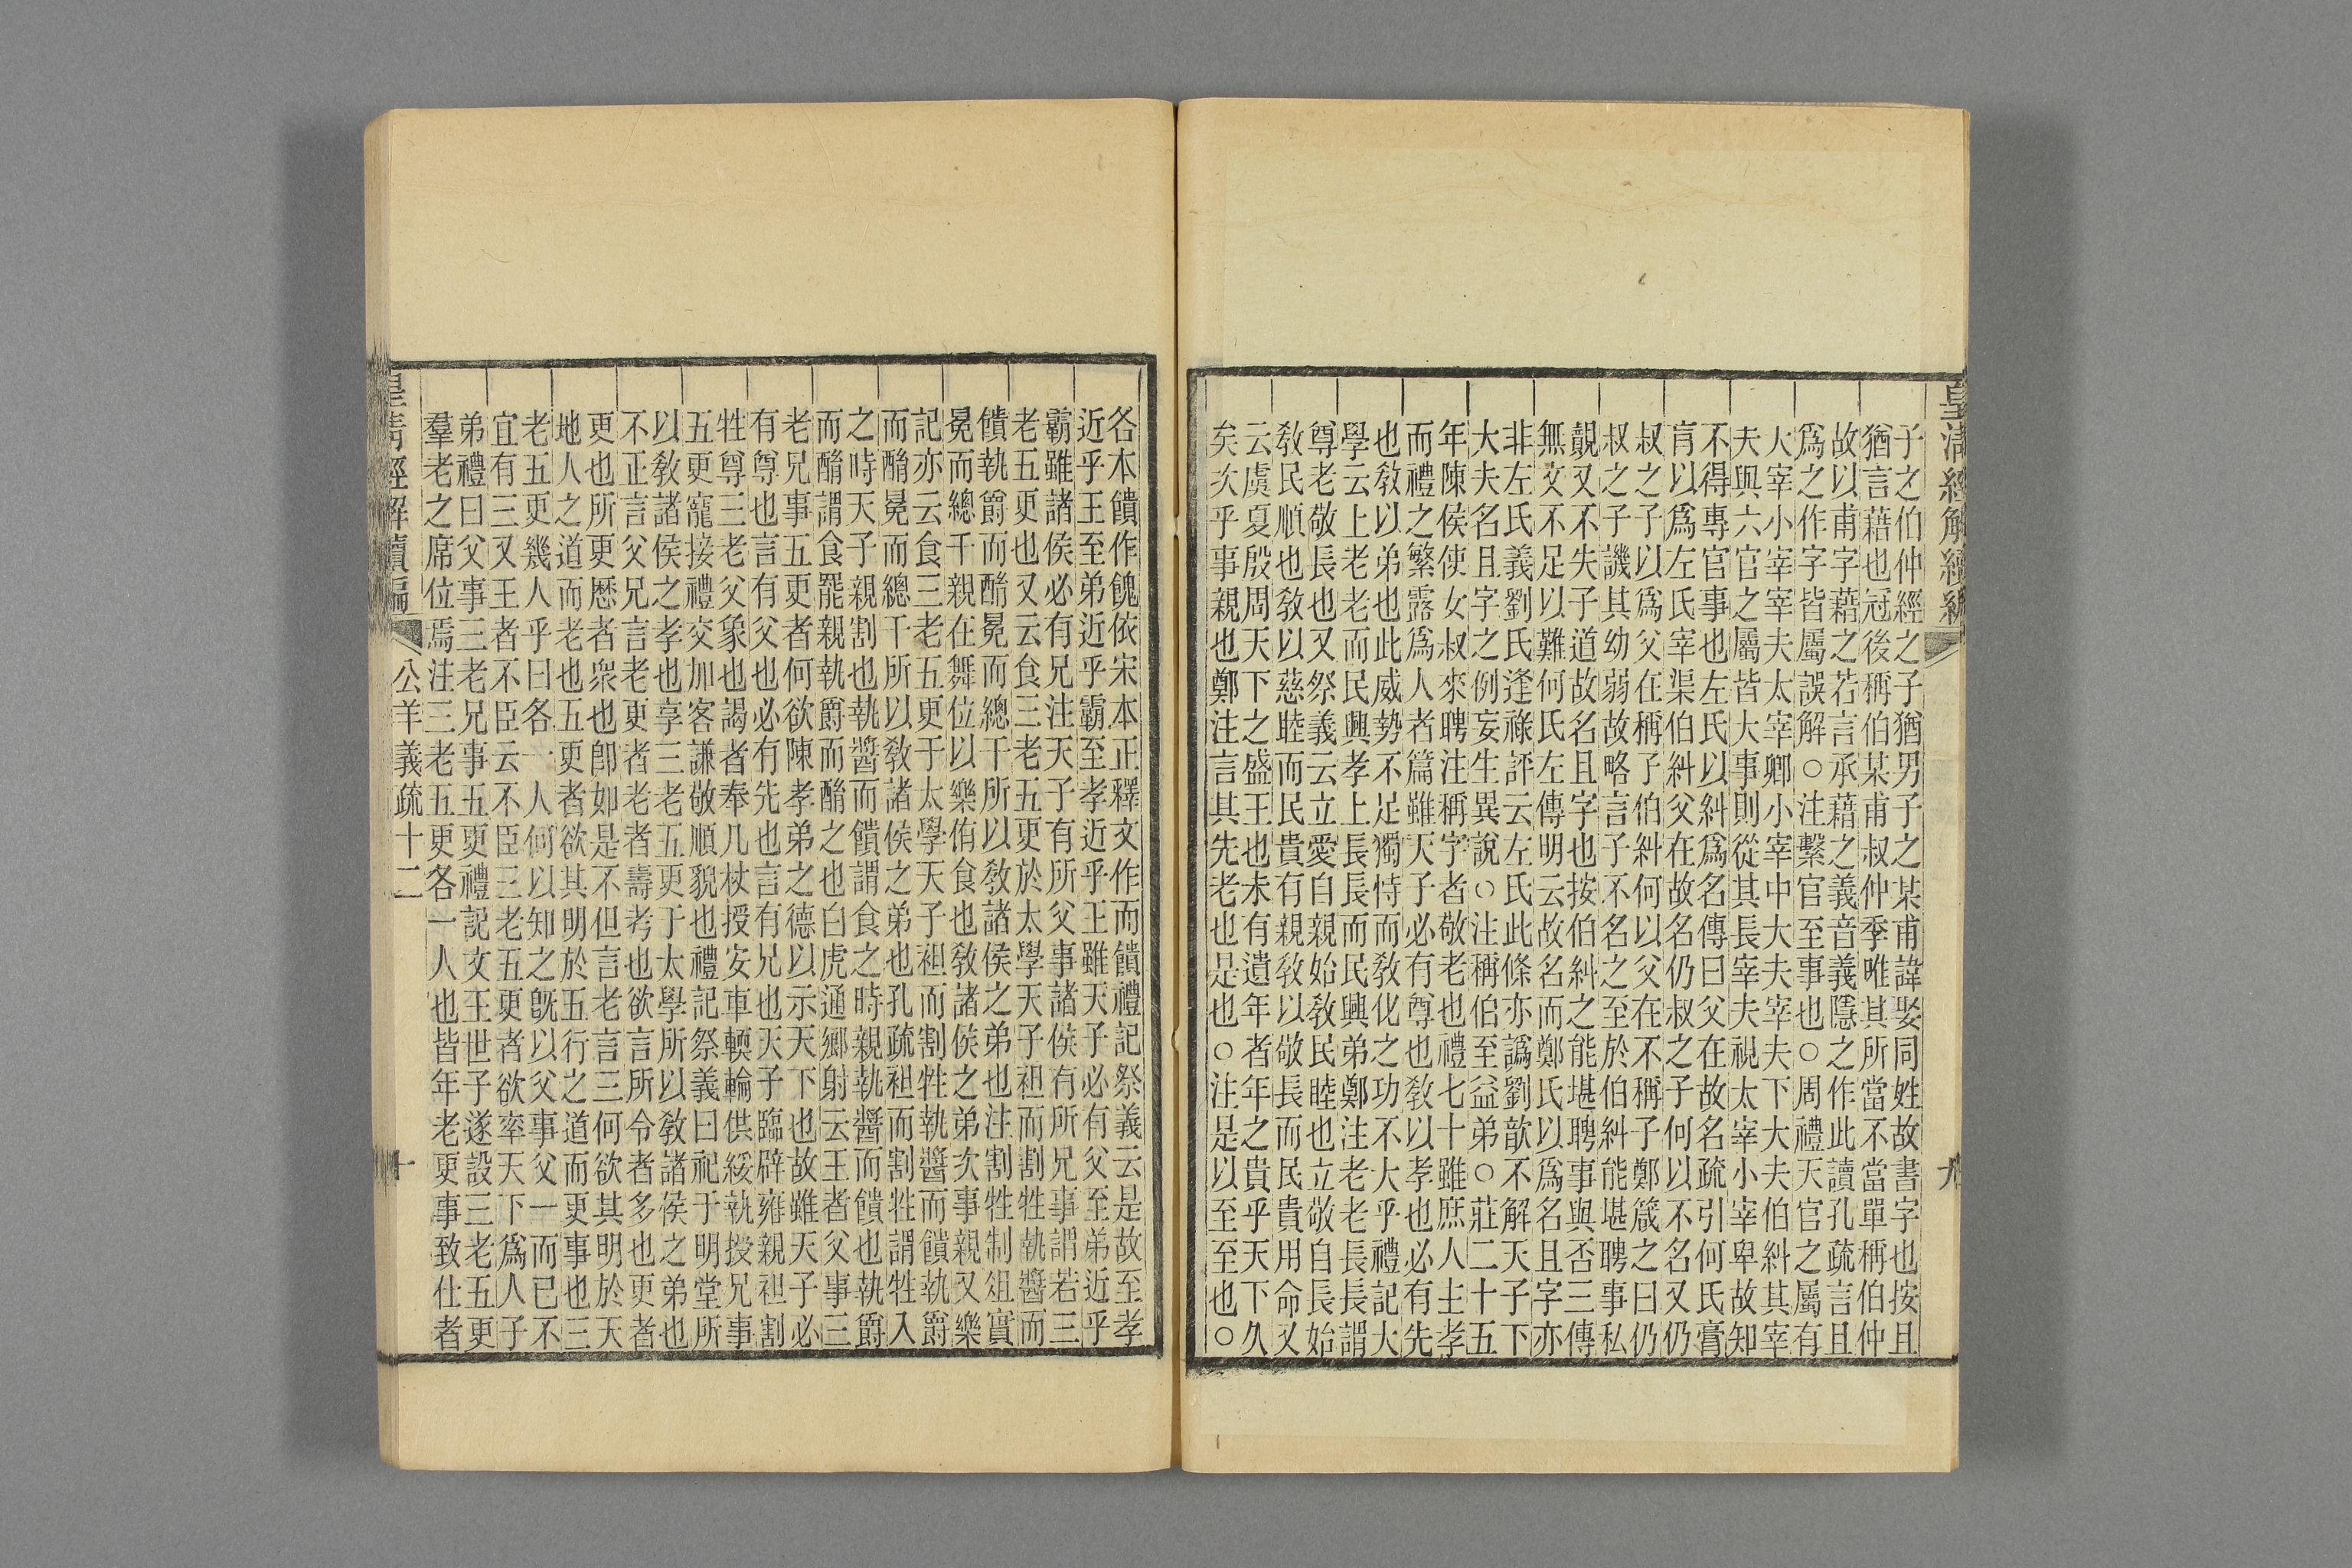 皇清經解續編
九
子之伯仲經之子猶男子之某甫諱娶同姓故書字也按且
猶言藉也冠後稱伯某甫叔仲季唯其所當不當單稱伯仲
故以甫字藉之若言承藉之義音義隱之作此讀孔疏言且
爲之作字皆屬誤解○注繫官至事也○周禮天官之屬有
大宰小宰宰夫太宰卿小宰中大夫宰夫下大夫伯糾其宰
夫與六官之屬皆大事則從其長宰夫視太宰小宰卑故知
不得專官事也左氏以糾爲名傳曰父在故名疏引何氏膏
肓以爲左氏宰渠伯糾父在故名仍叔之子何以不名又仍
叔之子以爲父在稱子伯糾何以父在不稱子鄭箴之曰仍
叔之子譏其幼弱故略言子不名之至於伯糾能堪聘事私
覿又不失子道故名且字也按伯糾之能堪聘事與否三傳
無文不足以難何氏左傳明云故名而鄭氏以爲名且字亦
非左氏義劉氏逢祿評云左氏此條亦譌劉歆不解天子下
大夫名且字之例妄生異說○注稱伯至益弟○莊二十五
年陳侯使女叔來聘注稱字者敬老也禮七十雖庶人士孝
而禮之繁露爲人者篇雖天子必有尊也敎以孝也必有先
也敎以弟也此威勢不足獨恃而敎化之功不大乎禮記大
學云上老老而民興孝上長長而民興弟鄭注老老長長謂
尊老敬長也又祭義云立愛自親始敎民睦也立敬自長始
敎民順也敎以慈睦而民貴有親敎以敬長而民貴用命又
云虞夏殷周天下之盛王也未有遺年者年之貴乎天下久
矣次乎事親也鄭注言其先老也是也○注是以至至也○
各本饋作餽依宋本正釋文作而饋禮記祭義云是故至孝
近乎王至弟近乎霸至孝近乎王雖天子必有父至弟近乎
霸雖諸侯必有兄注天子有所父事諸侯有所兄事謂若三
老五更也又云食三老五更於太學天子袒而割牲執醬而
饋執爵而酳冕而總干所以敎諸侯之弟也注割牲制俎實
冕而總干親在舞位以樂侑食也敎諸侯之弟次事親又樂
記亦云食三老五更于太學天子袒而割牲執醬而饋執爵
而酳冕而總干所以敎諸侯之弟也孔疏袒而割牲謂牲入
之時天子親割也執醬而饋謂食之時親執醬而饋也執爵
而酳謂食罷親執爵而酳之也白虎通鄉射云王者父事三
老兄事五更者何欲陳孝弟之德以示天下也故雖天子必
有尊也言有父也必有先也言有兄也天子臨辟雍親袒割
牲尊三老父象也謁者奉几杖授安車輭輪供綏執授兄事
五更寵接禮交加客謙敬順貌也禮記祭義曰祀于明堂所
以敎諸侯之孝也享三老五更于太學所以敎諸侯之弟也
不正言父兄言老更者老者壽考也欲言所令者多也更者
更也所更歷者衆也卽如是不但言老言三何欲其明於天
地人之道而老也五更者欲其明於五行之道而更事也三
老五更幾人乎曰各一人何以知之旣以父事父一而已不
宜有三又王者不臣云不臣三老五更者欲率天下爲人子
弟禮曰父事三老兄事五更禮記文王世子遂設三老五更
羣老之席位焉注三老五更各一人也皆年老更事致仕者
皇清經解續編
公羊義疏十二
十